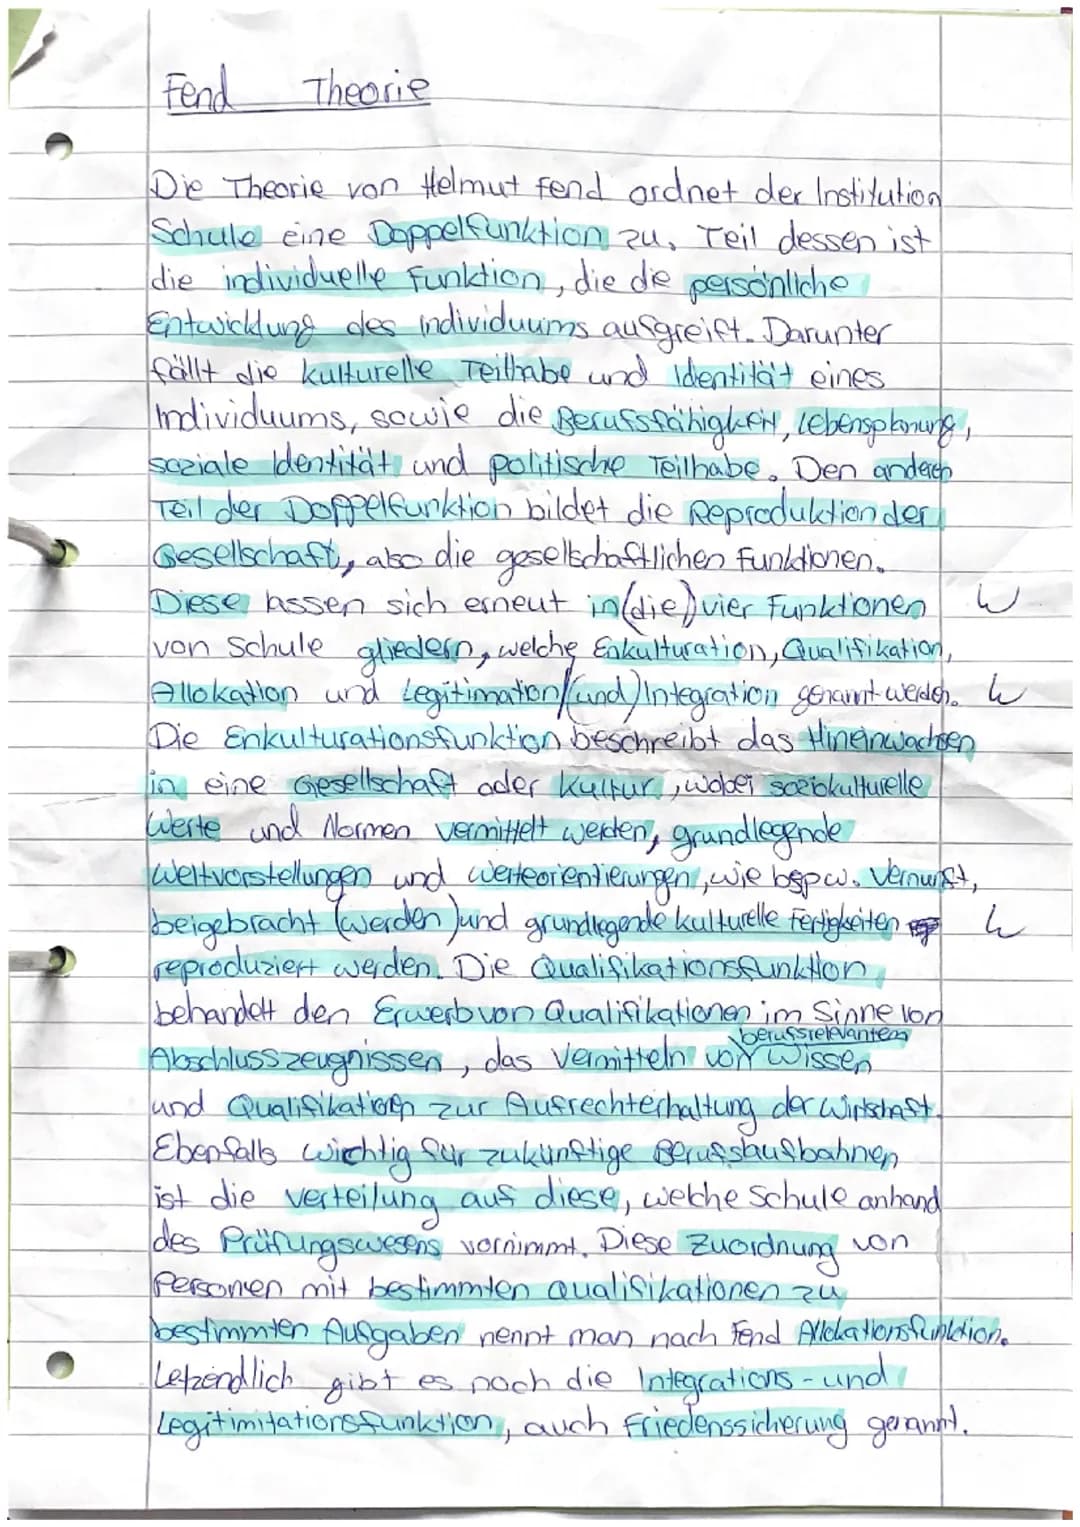 Fend Theorie
Die Theorie von Helmut Fend ordnet der Institution
Schule eine Doppelfunktion zu. Teil dessen ist
die individuelle Funktion, die die persönliche
Entwicklung des Individuums aufgreift. Darunter
fällt die kulturelle Teilhabe und Identität eines
Individuums, sowie die Berufsfähigkeit, Lebensplanung,
soziale Identität und politische Teilhabe. Den anderen
Teil der Doppelfunktion bildet die Reproduktion der
Gesellschaft, also die gesellschaftlichen Funktionen.
Diese lassen sich erneut in (die) vier Funktionen W
von Schule gliedern, welche Enkulturation, Qualifikation,
Allokation und Legitimation/(und) Integration genannt werden. W
Die Enkulturationsfunktion beschreibt das Hineinwachsen
in eine Gesellschaft oder Kultur, wobei soziokulturelle
Werte und Normen vermittelt werden, grundlegende
Weltvorstellungen und Werteorientierungen, wie bspw. Vernunft,
beigebracht (werden) und grundlegende kulturelle Fertigkeiten W
reproduziert werden. Die Qualifikationsfunktion
behandelt den Erwerb von Qualifikationen im Sinne von
berufsrelevantem
Abschlusszeugnissen, das Vermitteln von Wissen
und Qualifikation zur Aufrechterhaltung der Wirtschaft.
Ebenfalls wichtig für zukünftige Berufslaufbahnen
ist die Verteilung auf diese, welche Schule anhand
des Prüfungswesens vornimmt. Diese Zuordnung von
Personen mit bestimmten Qualifikationen zu
bestimmten Aufgaben nennt man nach Fend Allokationsfunktion.
Letzendlich gibt es noch die Integrations- und
Legitimitationsfunktion, auch Friedenssicherung genannt.